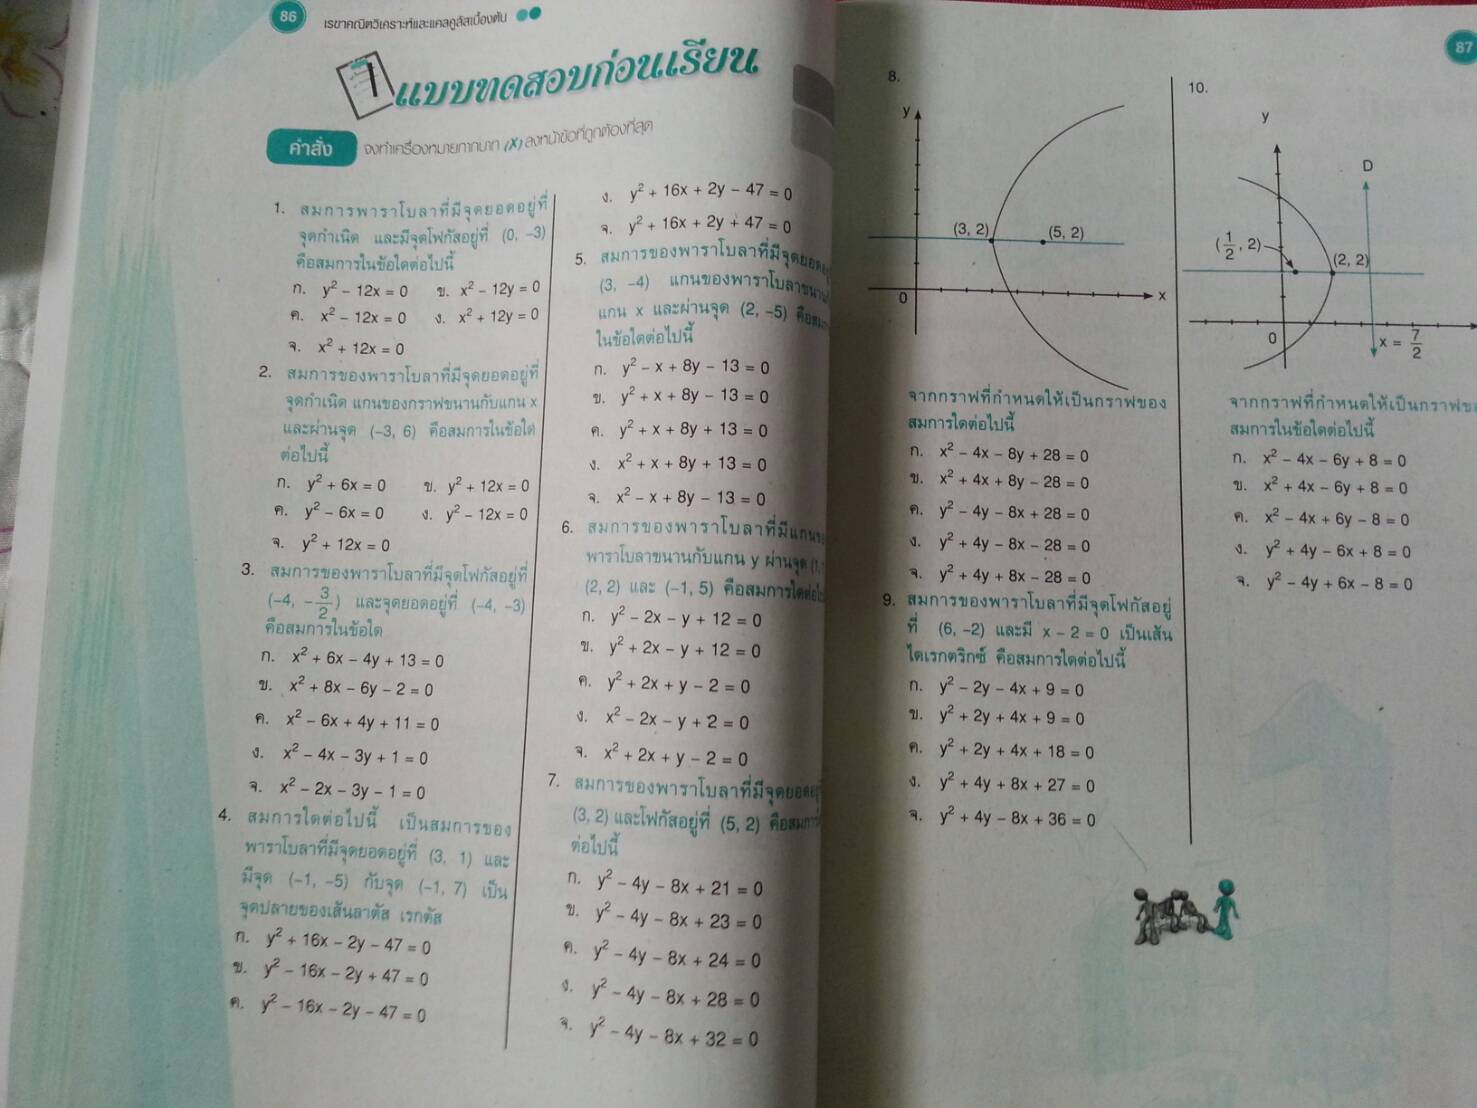 86 เรขาคณิตวิเคราะห์และแคลคูลัสเบื้องต้น
แบบทดสอบก่อนเรียน
คำสั่ง จงทำเครื่องหมายกากบาท (X) ลงหน้าข้อที่ถูกต้องที่สุด
1. สมการพาราโบลาที่มีจุดยอดอยู่ที่
จุดกำเนิด และมีจุดโฟกัสอยู่ที่ (0, −3)
คือสมการในข้อใดต่อไปนี้
ก. y² − 12x = 0 ข. x² − 12y = 0
ค. x² − 12x = 0 ง. x² + 12y = 0
จ. x² + 12x = 0
2. สมการของพาราโบลาที่มีจุดยอดอยู่ที่
จุดกำเนิด แกนของกราฟขนานกับแกน x
และผ่านจุด (−3, 6) คือสมการในข้อใด
ต่อไปนี้
ก. y² + 6x = 0 ข. y² + 12x = 0
ค. y² − 6x = 0 ง. y² − 12x = 0
จ. y² + 12x = 0
3. สมการของพาราโบลาที่มีจุดโฟกัสอยู่ที่
(−4, −3/2) และจุดยอดอยู่ที่ (−4, −3)
คือสมการในข้อใด
ก. x² + 6x − 4y + 13 = 0
ข. x² + 8x − 6y − 2 = 0
ค. x² − 6x + 4y + 11 = 0
ง. x² − 4x − 3y + 1 = 0
จ. x² − 2x − 3y − 1 = 0
4. สมการใดต่อไปนี้ เป็นสมการของ
พาราโบลาที่มีจุดยอดอยู่ที่ (3, 1) และ
มีจุด (−1, −5) กับจุด (−1, 7) เป็น
จุดปลายของเส้นลาตัส เรกตัส
ก. y² + 16x − 2y − 47 = 0
ข. y² − 16x − 2y + 47 = 0
ค. y² − 16x − 2y − 47 = 0
ง. y² + 16x + 2y − 47 = 0
จ. y² + 16x + 2y + 47 = 0
5. สมการของพาราโบลาที่มีจุดยอดอยู่
(3, −4) แกนของพาราโบลาขนาน
แกน x และผ่านจุด (2, −5) คือสม
ในข้อใดต่อไปนี้
ก. y² − x + 8y − 13 = 0
ข. y² + x + 8y − 13 = 0
ค. y² + x + 8y + 13 = 0
ง. x² + x + 8y + 13 = 0
จ. x² − x + 8y − 13 = 0
6. สมการของพาราโบลาที่มีแกนขอ
พาราโบลาขนานกับแกน y ผ่านจุด (1,
(2, 2) และ (−1, 5) คือสมการใดต่อ
ก. y² − 2x − y + 12 = 0
ข. y² + 2x − y + 12 = 0
ค. y² + 2x + y − 2 = 0
ง. x² − 2x − y + 2 = 0
จ. x² + 2x + y − 2 = 0
7. สมการของพาราโบลาที่มีจุดยอดอยู่
(3, 2) และโฟกัสอยู่ที่ (5, 2) คือสมการ
ต่อไปนี้
ก. y² − 4y − 8x + 21 = 0
ข. y² − 4y − 8x + 23 = 0
ค. y² − 4y − 8x + 24 = 0
ง. y² − 4y − 8x + 28 = 0
จ. y² − 4y − 8x + 32 = 0
87
8.
y
(3, 2) (5, 2)
0 x
จากกราฟที่กำหนดให้เป็นกราฟของ
สมการใดต่อไปนี้
ก. x² − 4x − 8y + 28 = 0
ข. x² + 4x + 8y − 28 = 0
ค. y² − 4y − 8x + 28 = 0
ง. y² + 4y − 8x − 28 = 0
จ. y² + 4y + 8x − 28 = 0
9. สมการของพาราโบลาที่มีจุดโฟกัสอยู่
ที่ (6, −2) และมี x − 2 = 0 เป็นเส้น
ไดเรกตริกซ์ คือสมการใดต่อไปนี้
ก. y² − 2y − 4x + 9 = 0
ข. y² + 2y + 4x + 9 = 0
ค. y² + 2y + 4x + 18 = 0
ง. y² + 4y + 8x + 27 = 0
จ. y² + 4y − 8x + 36 = 0
10.
y
D
(1/2, 2) (2, 2)
0 x = 7/2
จากกราฟที่กำหนดให้เป็นกราฟขอ
สมการในข้อใดต่อไปนี้
ก. x² − 4x − 6y + 8 = 0
ข. x² + 4x − 6y + 8 = 0
ค. x² − 4x + 6y − 8 = 0
ง. y² + 4y − 6x + 8 = 0
จ. y² − 4y + 6x − 8 = 0